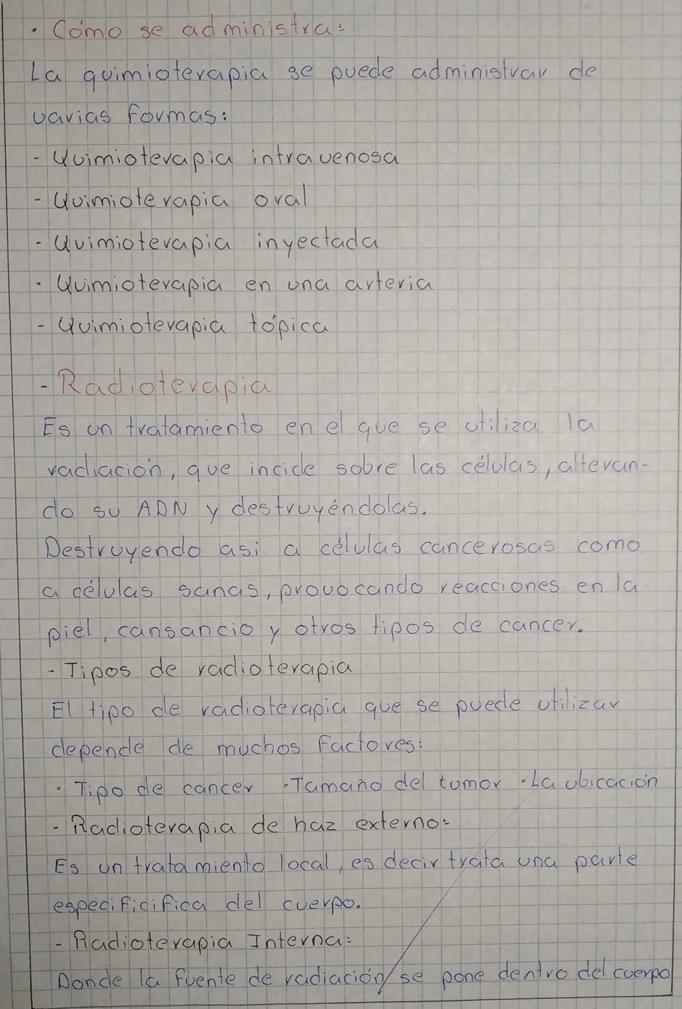 · Cómo se administra:
La quimioterapia se puede administrar de
varias formas:
- Quimioterapia intravenosa
- Quimioterapia oral
- Quimioterapia inyectada
· Quimioterapia en una arteria
- Quimioterapia tópica
- Radioterapia
Es un tratamiento en el que se utiliza la
radiación, que incide sobre las células, alteran-
do su ADN y destruyéndolas.
Destruyendo asi a células cancerosas como
a células sanas, provocando reacciones en la
piel, cansancio y otros tipos de cancer.
- Tipos de radioterapia
El tipo de radioterapia que se puede utilizar
depende de muchos factores:
· Tipo de cancer · Tamaño del tumor · La ubicación
- Radioterapia de haz externo:
Es un tratamiento local, es decir trata una parte
especificifica del cuerpo.
- Radioterapia Interna:
Donde la fuente de radiación se pone dentro del cuerpo